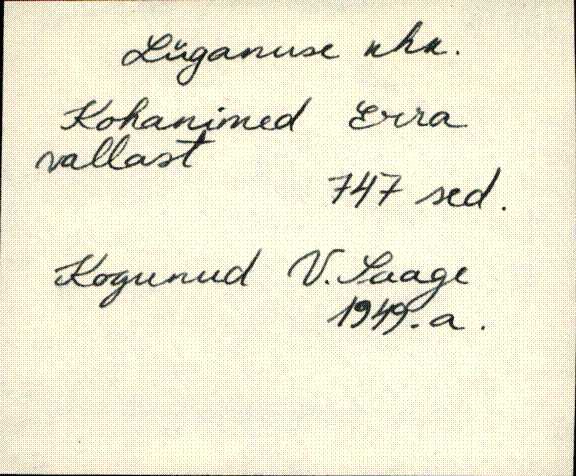 Lüganuse khk.
Kohanimed Erra
vallast
747 sed.
Kogunud V. Saage
1949. a.